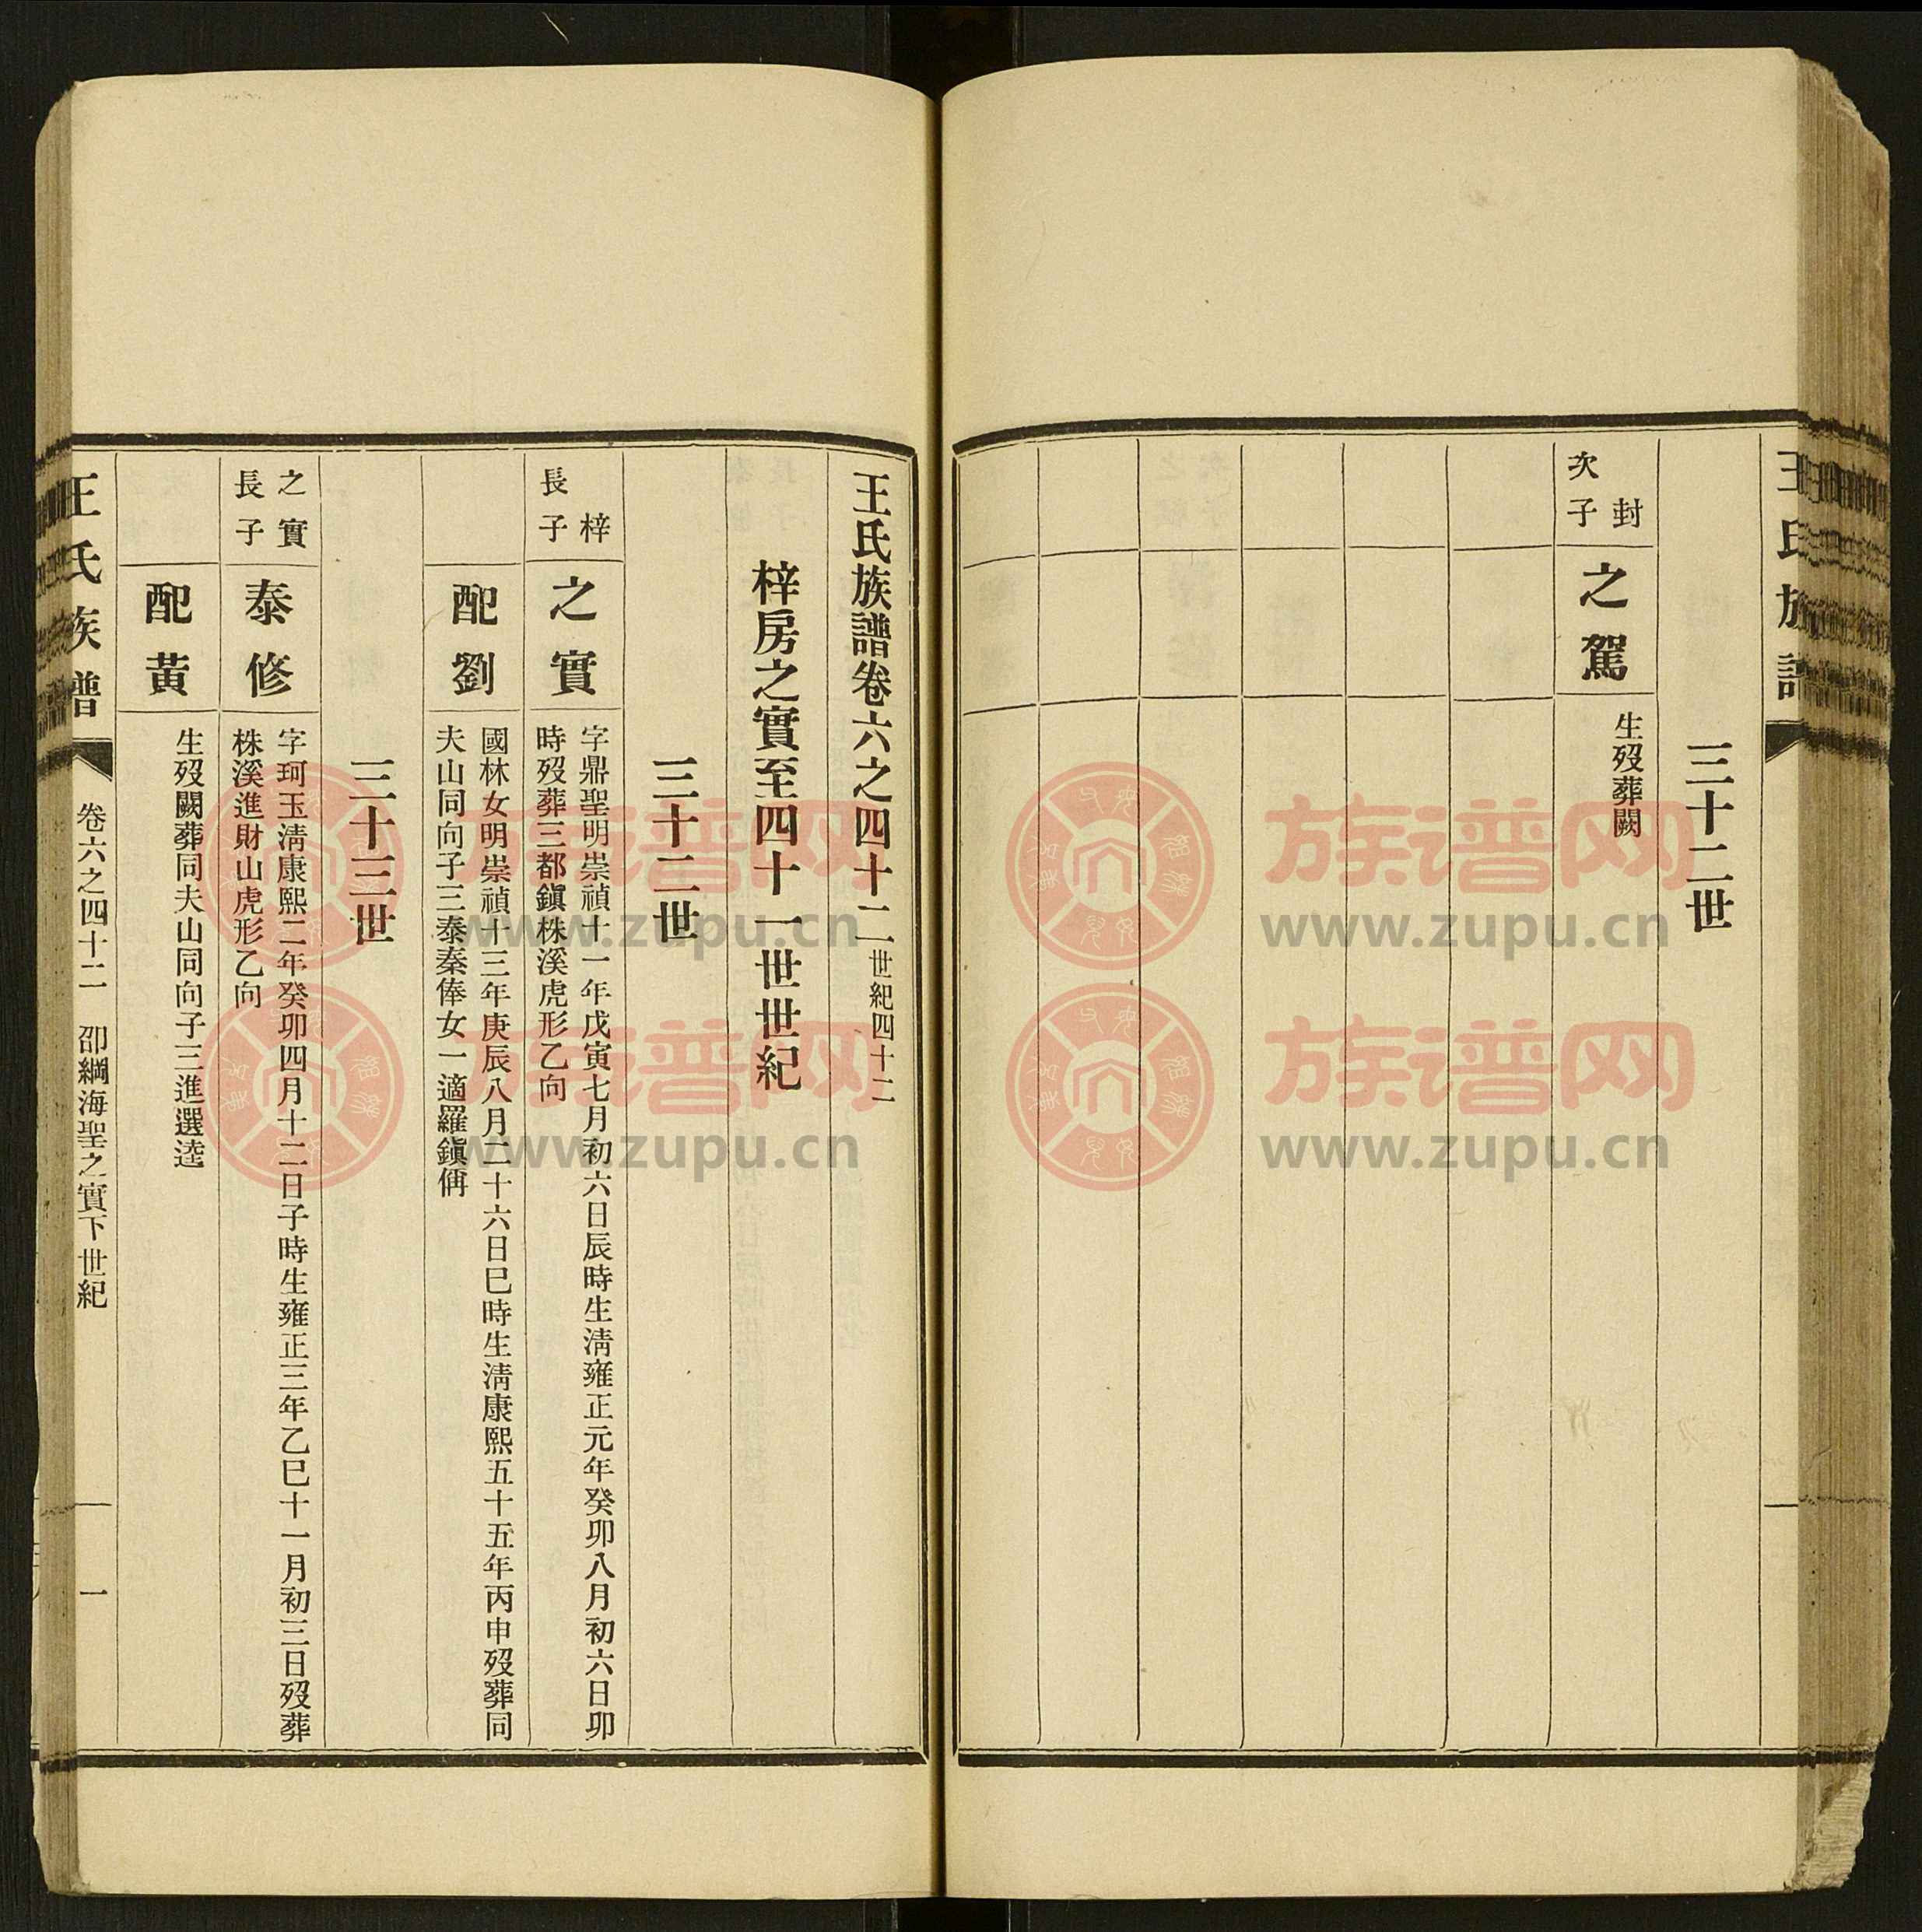 王氏族譜
三十二世
封
次子
之駕
生歿葬闕
王氏族譜卷六之四十二世紀四十二
梓房之實至四十一世世紀
三十二世
梓
長子
之實
字鼎聖明崇禎十一年戊寅七月初六日辰時生淸雍正元年癸卯八月初六日卯
時歿葬三都鎭株溪虎形乙向
配劉
國林女明崇禎十三年庚辰八月二十六日巳時生淸康熙五十五年丙申歿葬同
夫山同向子三泰秦俸女一適羅鎭偁
三十三世
之實
長子
泰修
字珂玉淸康熙二年癸卯四月十二日子時生雍正三年乙巳十一月初三日歿葬
株溪進財山虎形乙向
配黃
生歿闕葬同夫山同向子三進選逵
王氏族譜
卷六之四十二
卲綱海聖之實下世紀
一
族谱网
www.zupu.cn
族谱网
www.zupu.cn
族谱网
www.zupu.cn
族谱网
www.zupu.cn